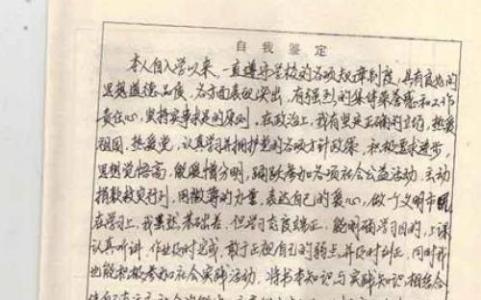 自我鉴定
本人自入学以来,一直遵守学校的各项规章制度,具有良好的
思想道德品质,各方面表现突出,有强烈的集体荣誉感和工作
责任心,坚持实事求是的原则。在政治上,我有坚定正确的立场,热爱
祖国,热爱党,认真学习并拥护党的各项方针政策,积极要求进步,
思想觉悟高,能爱憎分明,踊跃参加各项社会公益活动,主动
捐款救灾行列,用微薄的力量,表达自己的爱心,做个文明市民
在学习上,我虽然基础差,但学习态度端正,能明确学习目的,上课
认真听讲,作业及时完成,敢于正视自己的弱点并及时纠正,同时我
也能积极参加社会实践活动,将书本知识与实践知识相结合